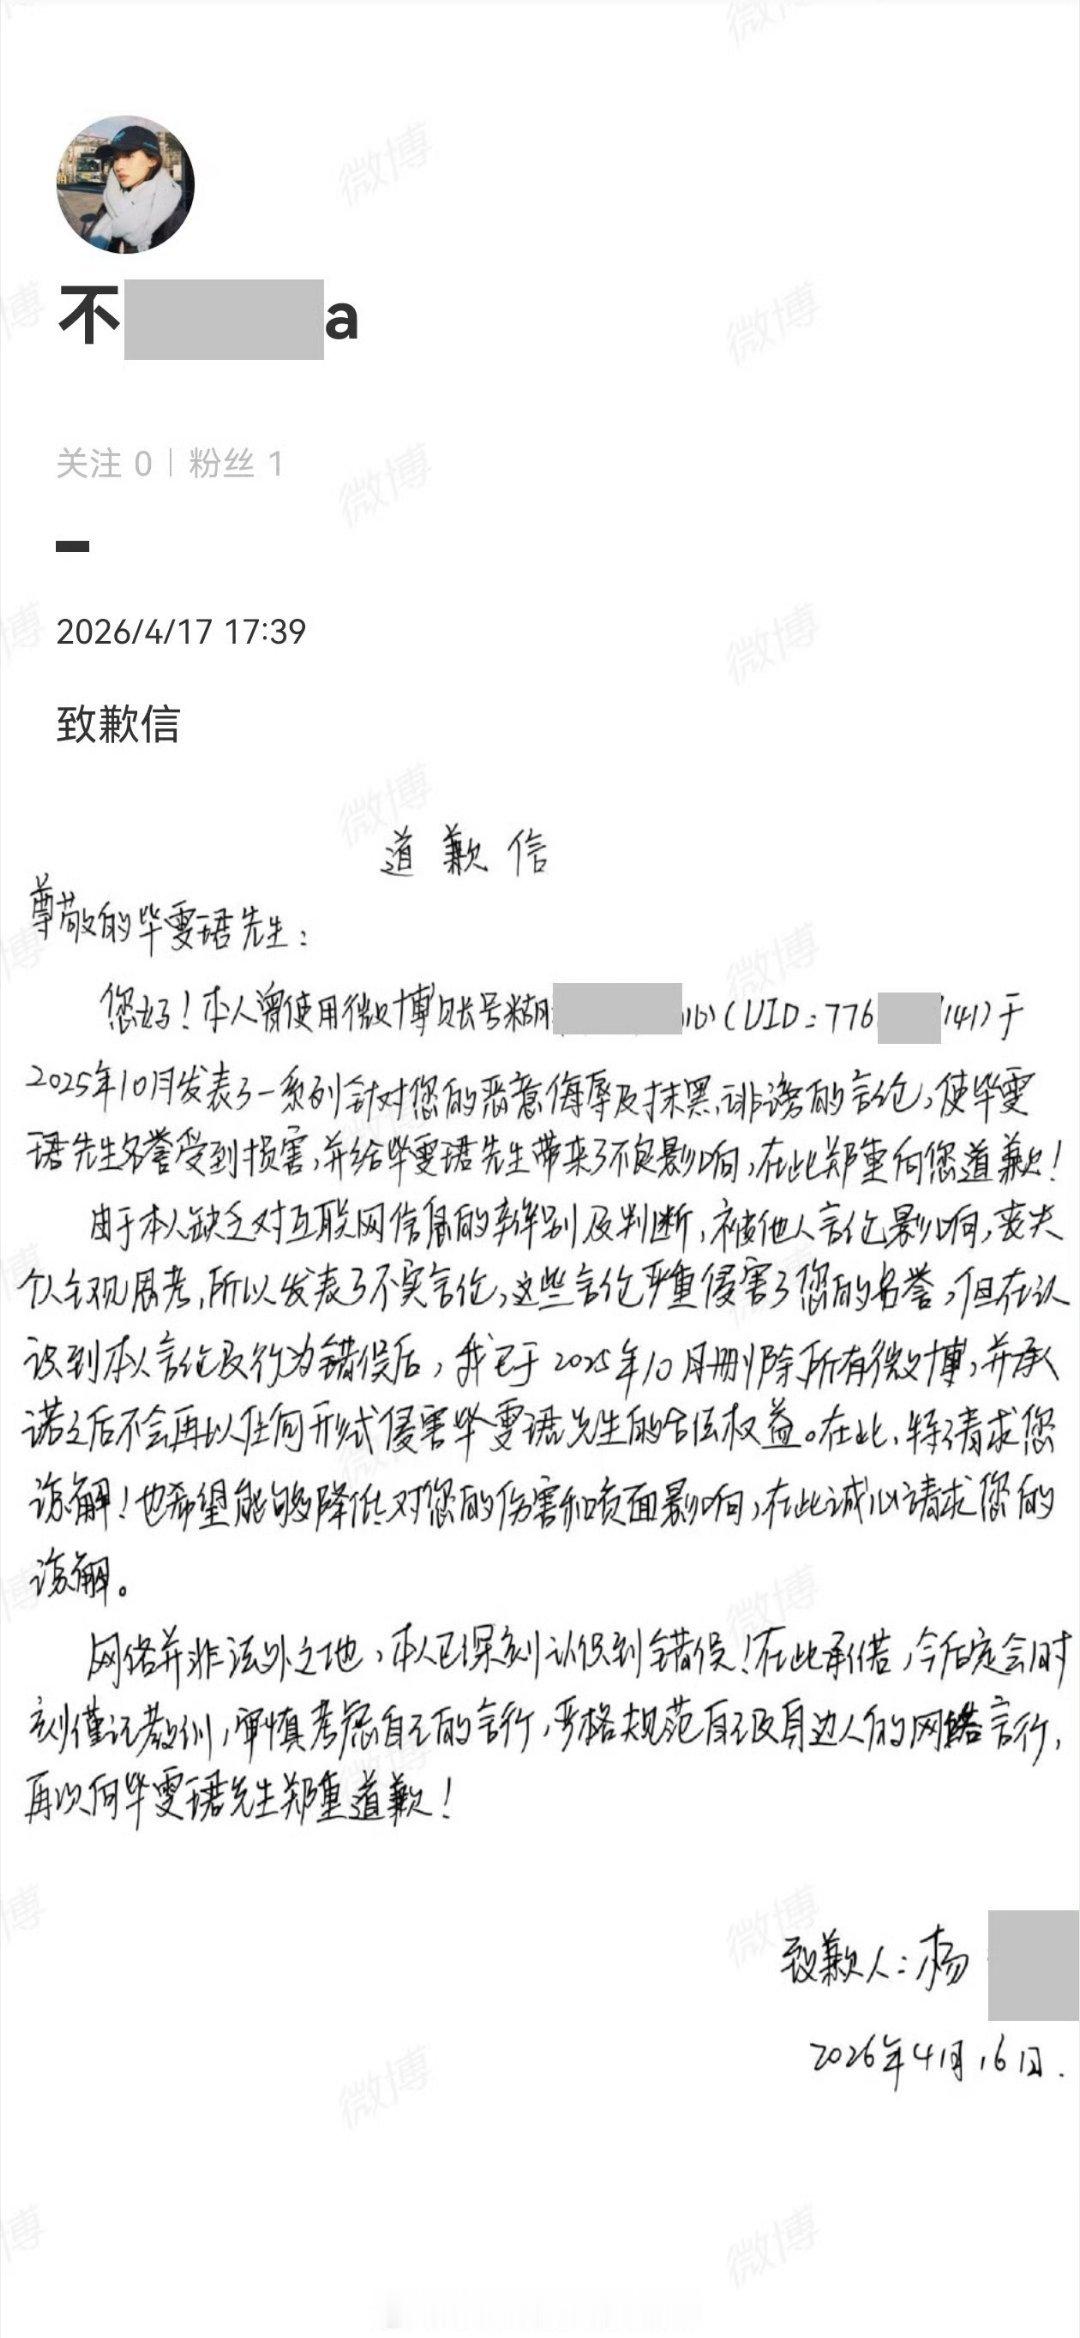 不 a
关注 0 | 粉丝 1
2026/4/17 17:39
致歉信
道歉信
尊敬的毕雯珺先生：
您好！本人曾使用微博账号糊 (UID：776 141)于
2025年10月发表了一系列针对您的恶意侮辱及抹黑、诽谤的言论，使毕雯
珺先生名誉受到损害，并给毕雯珺先生带来了不良影响，在此郑重向您道歉！
由于本人缺乏对互联网信息的辨别及判断，被他人言论影响，丧失
个人客观思考，所以发表了不实言论，这些言论严重侵害了您的名誉，但在认
识到本人言论及行为错误后，我已于2025年10月删除所有微博，并承
诺之后不会再以任何形式侵害毕雯珺先生的合法权益。在此，特请求您
谅解！也希望能够降低对您的伤害和负面影响，在此诚心请求您的
谅解。
网络并非法外之地，本人已深刻认识到错误！在此承诺，今后定会时
刻谨记教训，审慎考虑自己的言行，严格规范自己及身边人的网络言行，
再次向毕雯珺先生郑重道歉！
致歉人：杨
2026年4月16日.
微博